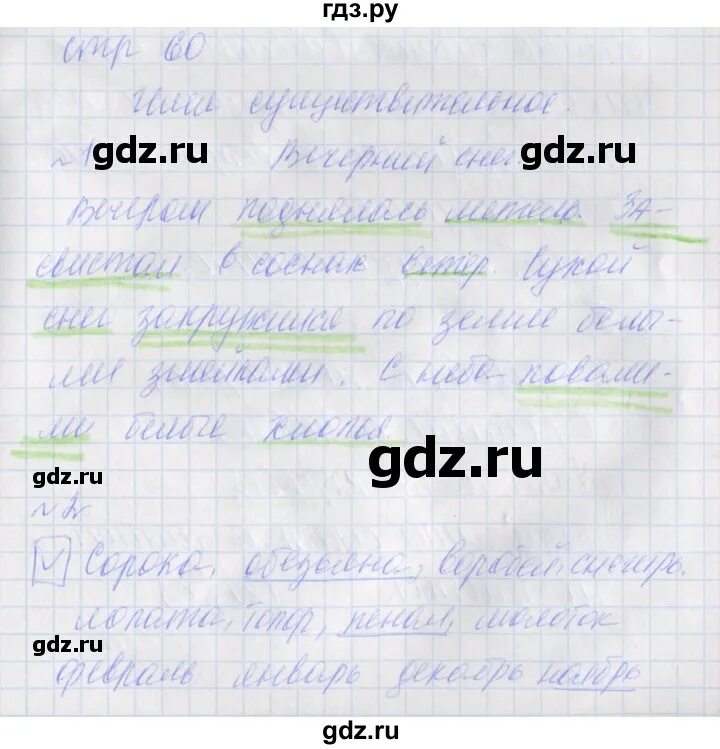 гдз.ру
стр 60
Имя существительное.
gdz.ru gdz.ru
№1 Вечерний снег
Вечером поднялась метель. За-
свистал в соснах ветер. Сухой
снег закружился по земле белы-
ми змейками. С неба повали-
ли белые хлопья
gdz.ru
gdz.ru
№2
Сорока, обезьяна, воробей, снегирь.
лопата, топор, пенал, молоток
gdz.ru gdz.ru
февраль январь декабрь ноябрь
gdz.ru